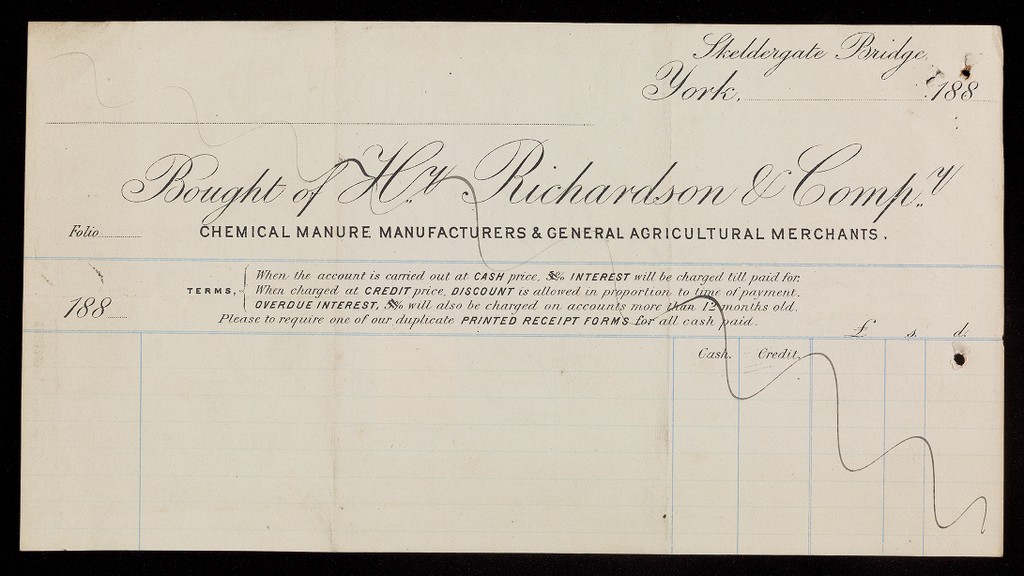 Skeldergate Bridge,
York, 188
Bought of Hy. Richardson & Compy.
Folio
CHEMICAL MANURE MANUFACTURERS & GENERAL AGRICULTURAL MERCHANTS.
188
TERMS,
When the account is carried out at CASH price, 5% INTEREST will be charged till paid for.
When charged at CREDIT price, DISCOUNT is allowed in proportion to time of payment.
OVERDUE INTEREST, 5% will also be charged on accounts more than 12 months old.
Please to require one of our duplicate PRINTED RECEIPT FORMS for all cash paid.
£ s. d.
Cash. Credit.